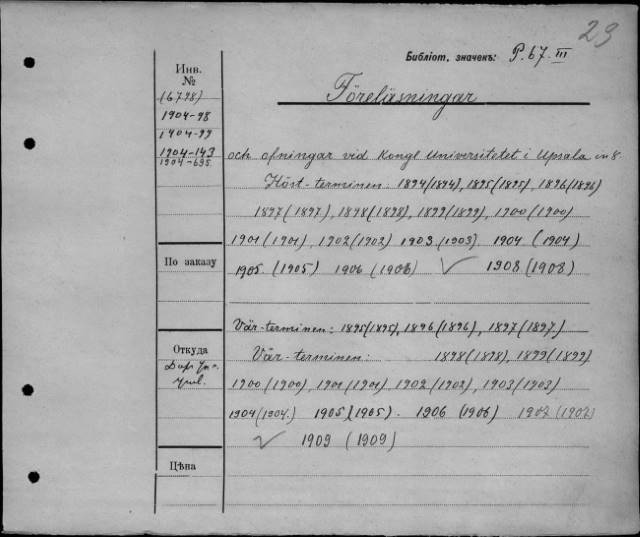 29
Библіот. значекъ: P. 67. III
Инв.
№
(6798)
1904-98
1904-99
1904-143
1904-695.
Föreläsningar
och ofningar vid Kongl Universitetet i Upsala in 8.
Höst-terminen: 1894(1894), 1895(1895), 1896(1896)
1897(1897), 1898(1898), 1899(1899), 1900(1900)
1901(1901), 1902(1902) 1903(1903) 1904 (1904)
По заказу
1905. (1905) 1906 (1906) ✓ 1908 (1908)
Vär-terminen: 1895(1895), 1896(1896), 1897(1897.)
Откуда
Vär-terminen: 1898(1898), 1899(1899)
1900(1900), 1901(1901) 1902(1902), 1903(1903)
1904(1904.) 1905(1905). 1906 (1906) 1902 (1902)
✓ 1909 (1909)
Цѣна